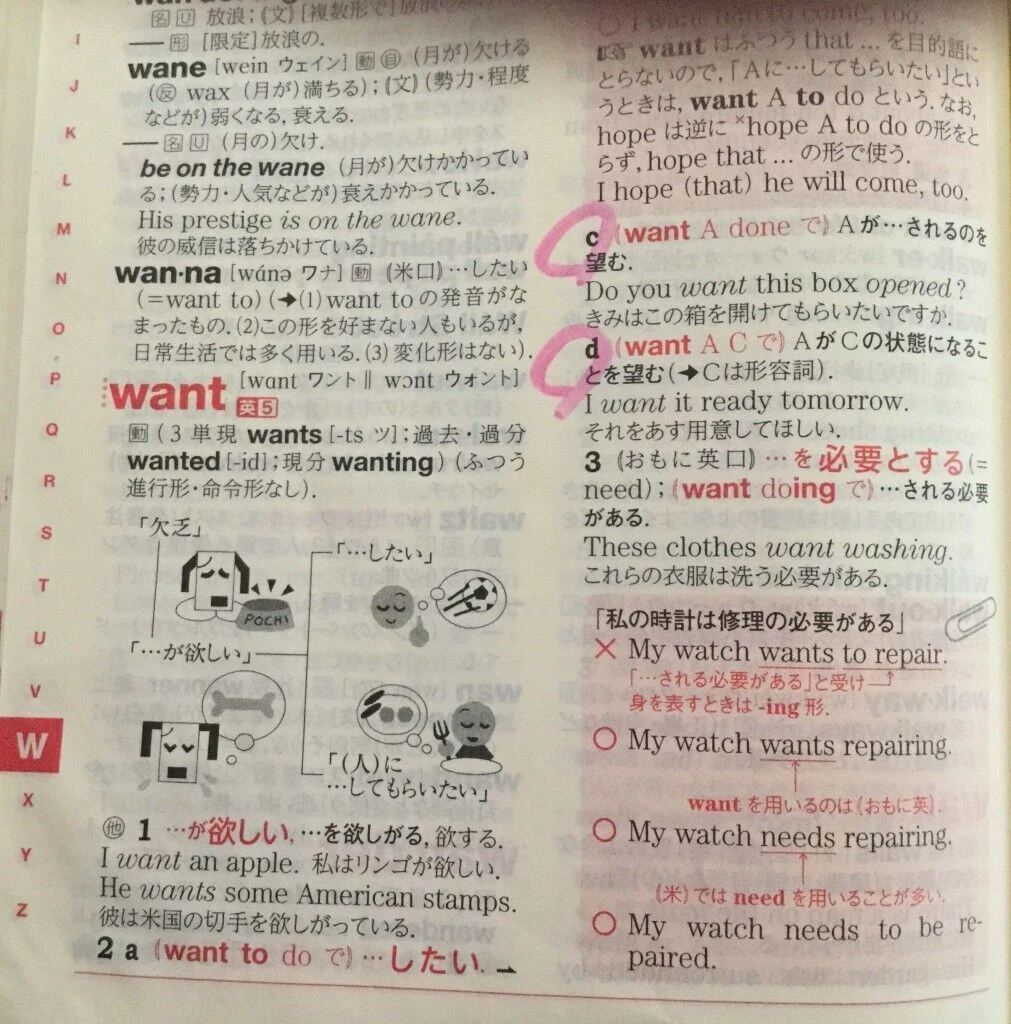 名 U 放浪；(文)[複数形で]放浪
── 形 [限定]放浪の.
wane [wein ウェイン] 動 自 (月が)欠ける
(反 wax (月が)満ちる)；(文)(勢力・程度
などが)弱くなる, 衰える.
── 名 U (月の)欠け.
be on the wane (月が)欠けかかってい
る；(勢力・人気などが)衰えかかっている.
His prestige is on the wane.
彼の威信は落ちかけている.
wan·na [wánə ワナ] 動 (米口)…したい
(=want to)(➔(1)want toの発音がな
まったもの. (2)この形を好まない人もいるが,
日常生活では多く用いる. (3)変化形はない).
want [wɑnt ワント‖wɔnt ウォント]
英5
動 (3単現 wants [-ts ツ]；過去・過分
wanted [-id]；現分 wanting)(ふつう
進行形・命令形なし).
「欠乏」
「…したい」
POCHI
「…が欲しい」
「(人)に
…してもらいたい」
他 1 …が欲しい, …を欲しがる, 欲する.
I want an apple. 私はリンゴが欲しい.
He wants some American stamps.
彼は米国の切手を欲しがっている.
2 a (want to do で)…したい.
☞ want はふつう that … を目的語に
とらないので,「Aに…してもらいたい」とい
うときは, want A to do という. なお,
hope は逆に ×hope A to do の形をと
らず, hope that … の形で使う.
I hope (that) he will come, too.
c (want A done で) Aが…されるのを
望む.
Do you want this box opened?
きみはこの箱を開けてもらいたいですか.
d (want A C で) AがCの状態になるこ
とを望む(➔Cは形容詞).
I want it ready tomorrow.
それをあす用意してほしい.
3 (おもに英口)…を必要とする(=
need)；(want doing で)…される必要
がある.
These clothes want washing.
これらの衣服は洗う必要がある.
「私の時計は修理の必要がある」
× My watch wants to repair.
「…される必要がある」と受け
身を表すときは -ing 形.
○ My watch wants repairing.
want を用いるのは(おもに英).
○ My watch needs repairing.
(米)では need を用いることが多い.
○ My watch needs to be re-
paired.
I
J
K
L
M
N
O
P
Q
R
S
T
U
V
W
X
Y
Z